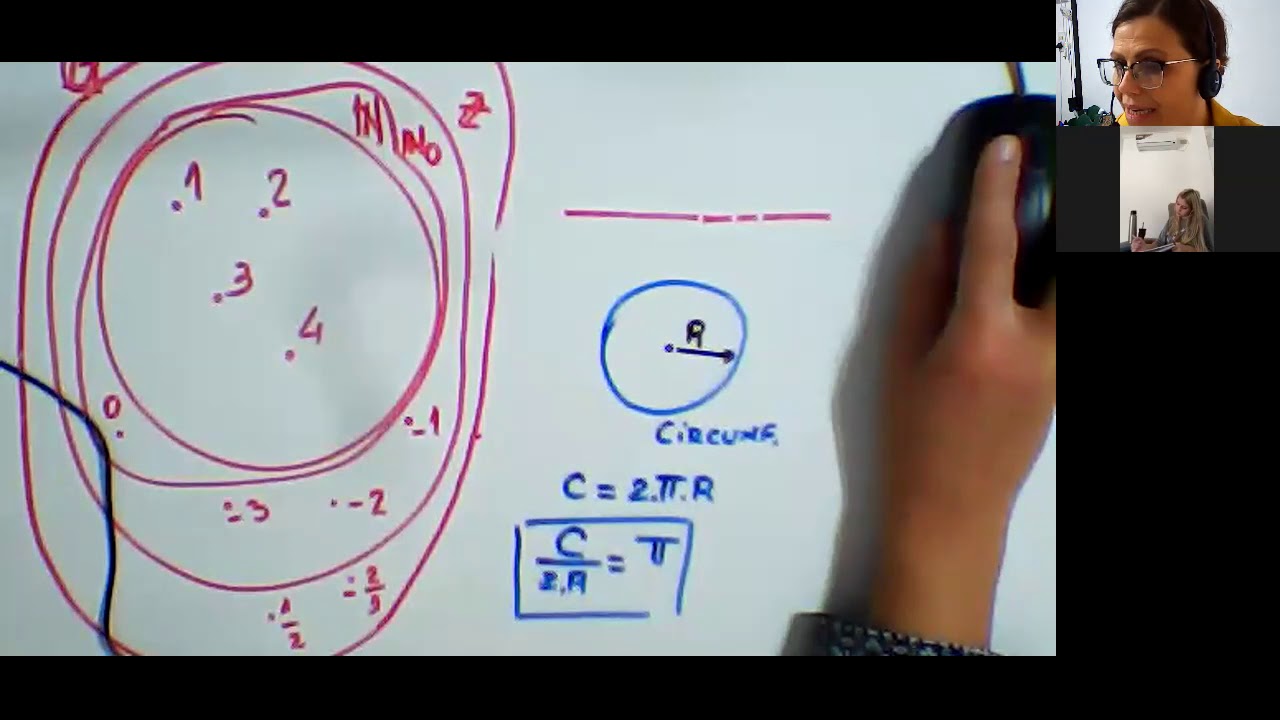 Q
Z
N
N₀
.1
.2
.3
.4
0
.-1
.-3
.-2
.1/2
.-2/3
R
CIRCUNF.
C = 2.π.R
C/2.R = π